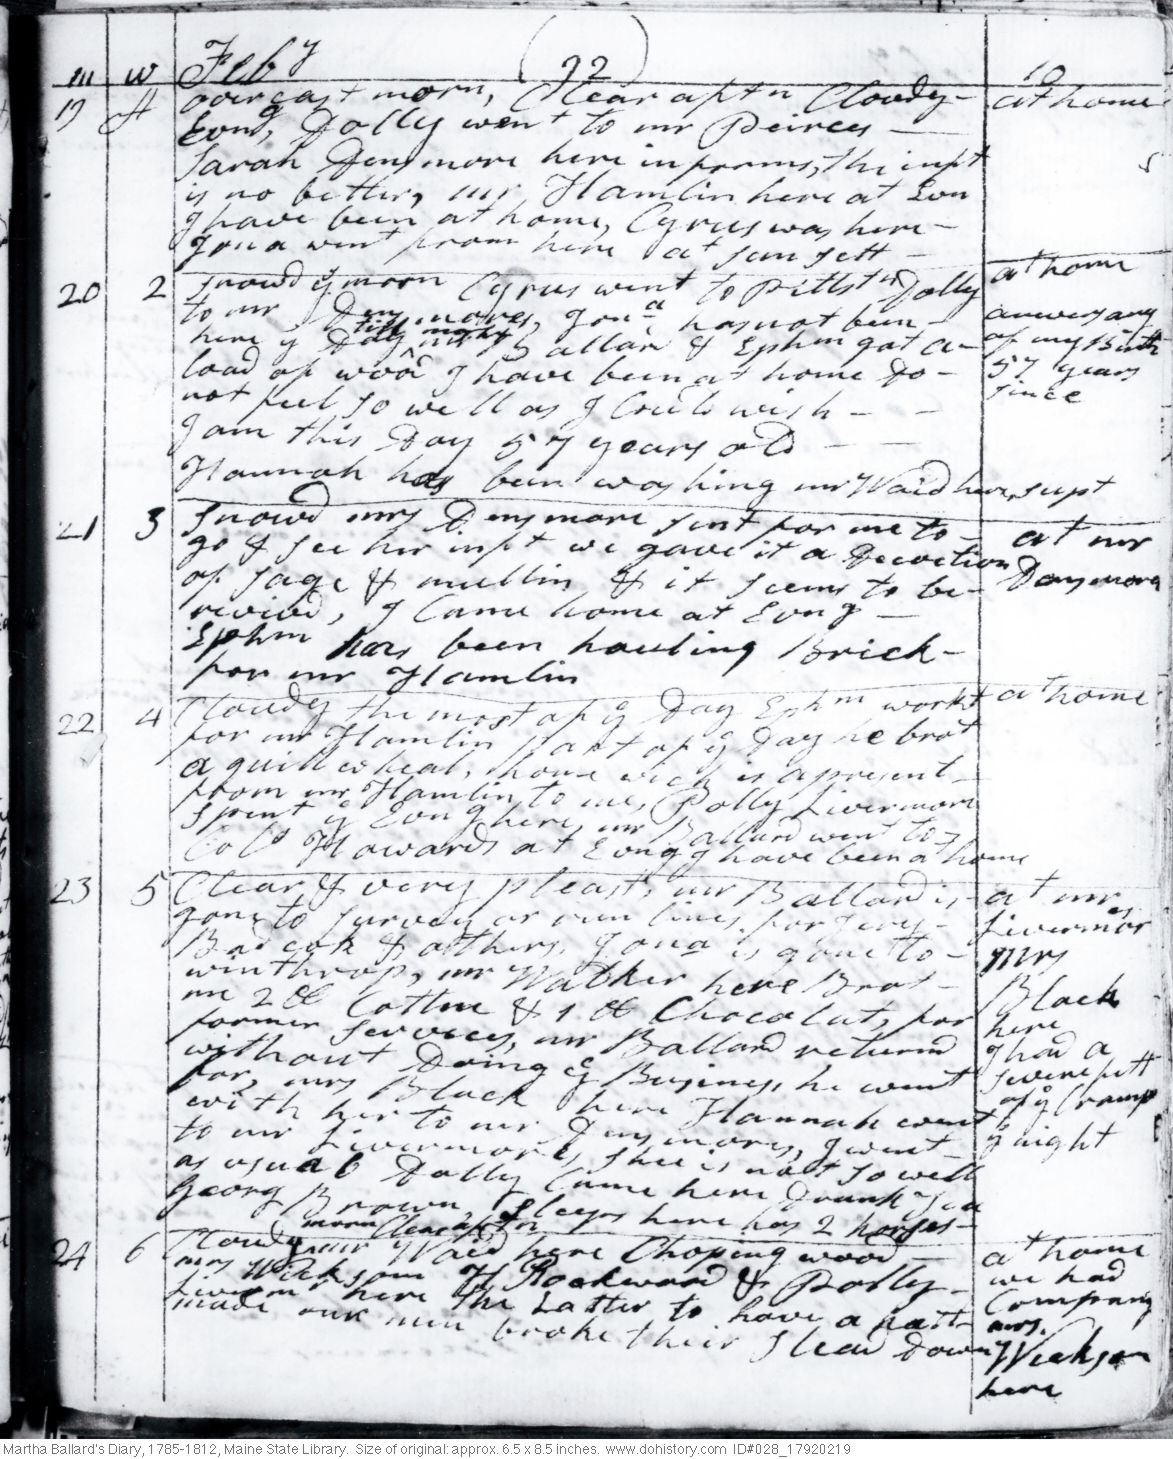 m w Feby (92) 10
19 A overcast morn, Clear aptn Cloudy at home
Evng, Dolly went to mr Peirces
Sarah Densmore here informs, the inft
is no better, mr Hamlin here at Evn
I have been at home, Cyrus was here
Jona went from here at sun sett
20 2 Snowd ye morn Cyrus went to Pittstn Dolly at home
to mr Densmores, Jona has not been anversary
here ye Day till night mr Ballard & Ephm got a of my Birth
load of wood I have been at home Do 57 years
not feel so well as I Could wish since
I am this Day 57 years old
Hannah has been washing mr Waid here, supt
21 3 Snowd mrs Densmore sent for me to at mr
go & see her inft we gave it a Decoction Densmors
of sage & mullin & it seems to be
revivd, I Came home at Evng
Ephm has been hauling Brick
for mr Hamlin
22 4 Cloudy the most of ye Day Ephm workt at home
for mr Hamlin part of ye Day he brot
a quill wheal, home wich is a present
from mr Hamlin to me, Polly Livermore
spent ye Evng here, mr Ballard went to
Colo Howards at Evng I have been a home
23 5 Clear & very pleast, mr Ballard is at mr
gone to survey or run lines for Jery Livermores
Badcok & others, Jona is gone to mrs
winthrop, mr Walker here Brot Black
me 2 lb Cotten & 1 lb Chocolat, for here
former services, mr Ballard returned I had a
without Doing ye Business he went severe fitt
for, mrs Black here Hannah went of ye Cramp
with her to mr Densmores, I went ye night
to mr Livermores, shee is not so well
as usual Dolly Came here Drank Tea
Georg Brown, sleeps here has 2 horses
24 6 Cloudy morn Clear aftn mr Waid here Choping wood at home
mrs Wicksom H Rockwood & Polly we had
Liverm here the Latter to have a patt Company
made our men broke their slead Down mrs.
Wickson
here
Martha Ballard's Diary, 1785-1812, Maine State Library. Size of original: approx. 6.5 x 8.5 inches. www.dohistory.com ID#028_17920219